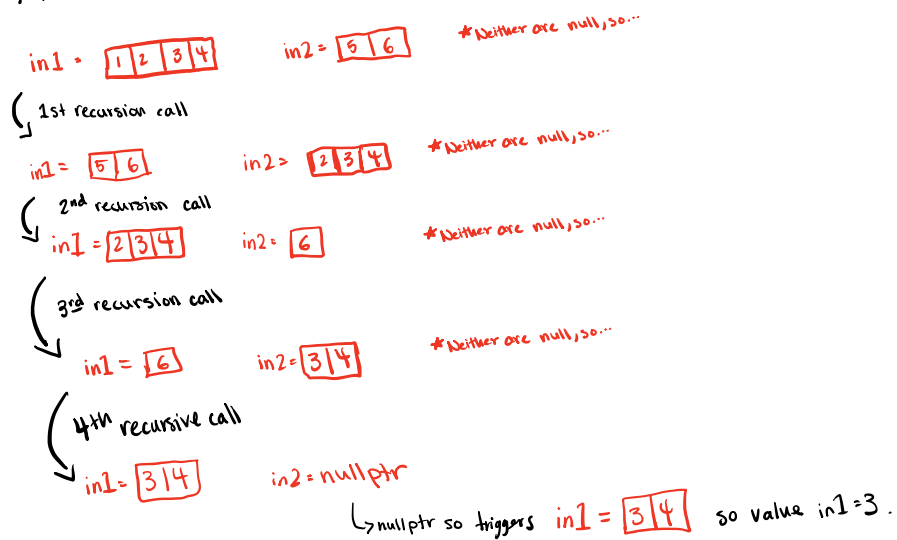 in1 = 1 2 3 4 in2 = 5 6 *Neither are null, so...
1st recursion call
in1 = 5 6 in2 = 2 3 4 *Neither are null, so...
2nd recursion call
in1 = 2 3 4 in2 = 6 *Neither are null, so...
3rd recursion call
in1 = 6 in2 = 3 4 *Neither are null, so...
4th recursive call
in1 = 3 4 in2 = nullptr
nullptr so triggers in1 = 3 4 so value in1 = 3.